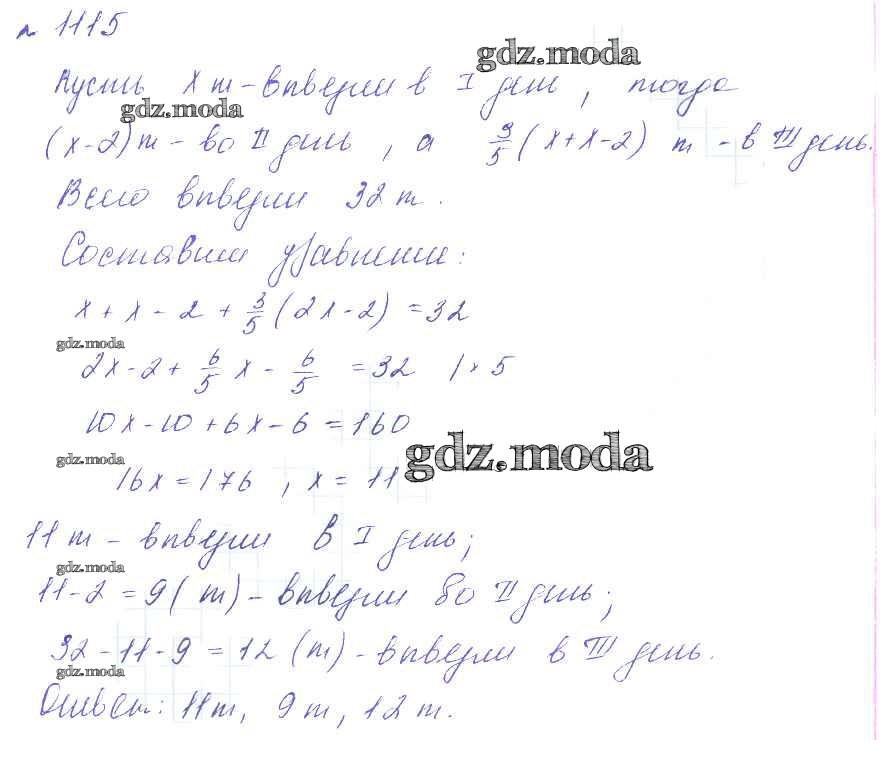 № 1115
gdz.moda
Пусть x т - в I день, тогда
gdz.moda
(x-2) т - во II день, а 3/5 (x+x-2) т - в III день.
Всего 32 т.
Составим уравнение:
x + x - 2 + 3/5 (2x-2) = 32
gdz.moda
2x-2 + 6/5 x - 6/5 = 32 | × 5
10x-10 + 6x-6 = 160
gdz.moda
gdz.moda
16x = 176, x = 11
11 т - в I день;
gdz.moda
11-2 = 9 (т) - во II день;
32-11-9 = 12 (т) - в III день.
gdz.moda
Ответ: 11 т, 9 т, 12 т.